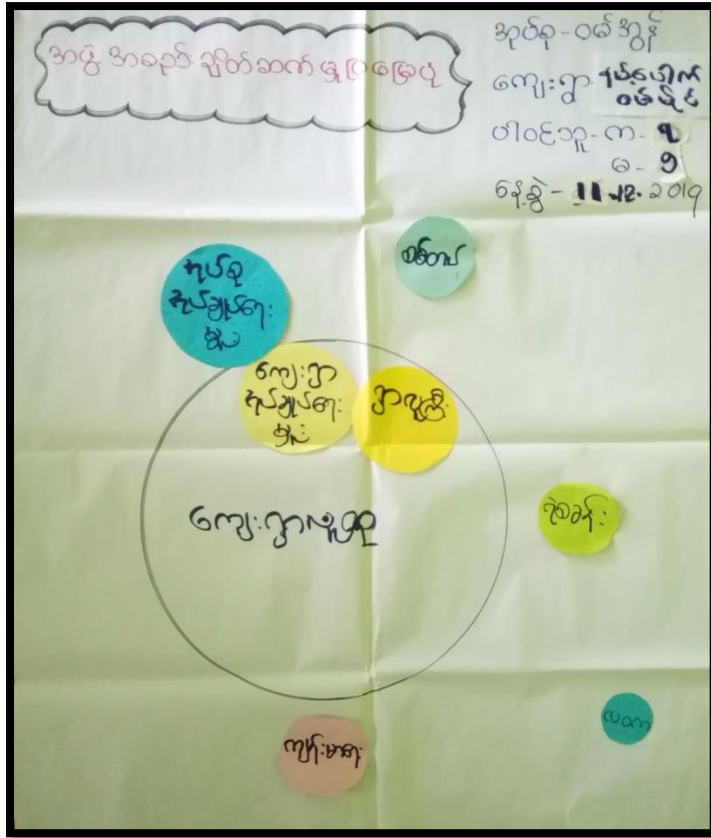 အဖွဲ့ အစည်း ချိတ်ဆက် မှု ပြ မြေပုံ
အုပ်စု - ဝမ်အွန်
ကျေးရွာ - နမ့်ပေါက်
ဝမ်ပိုင်
ပါဝင်သူ - က - ၇
မ - ၅
နေ့စွဲ - 11.12.2019
စစ်တပ်
အုပ်စု
အုပ်ချုပ်ရေး
မှူး
ကျေးရွာ
အုပ်ချုပ်ရေး
မှူး
ရွာလူကြီး
ကျေးရွာလူထု
ရဲစခန်း
လဝက
ကျန်းမာရေး